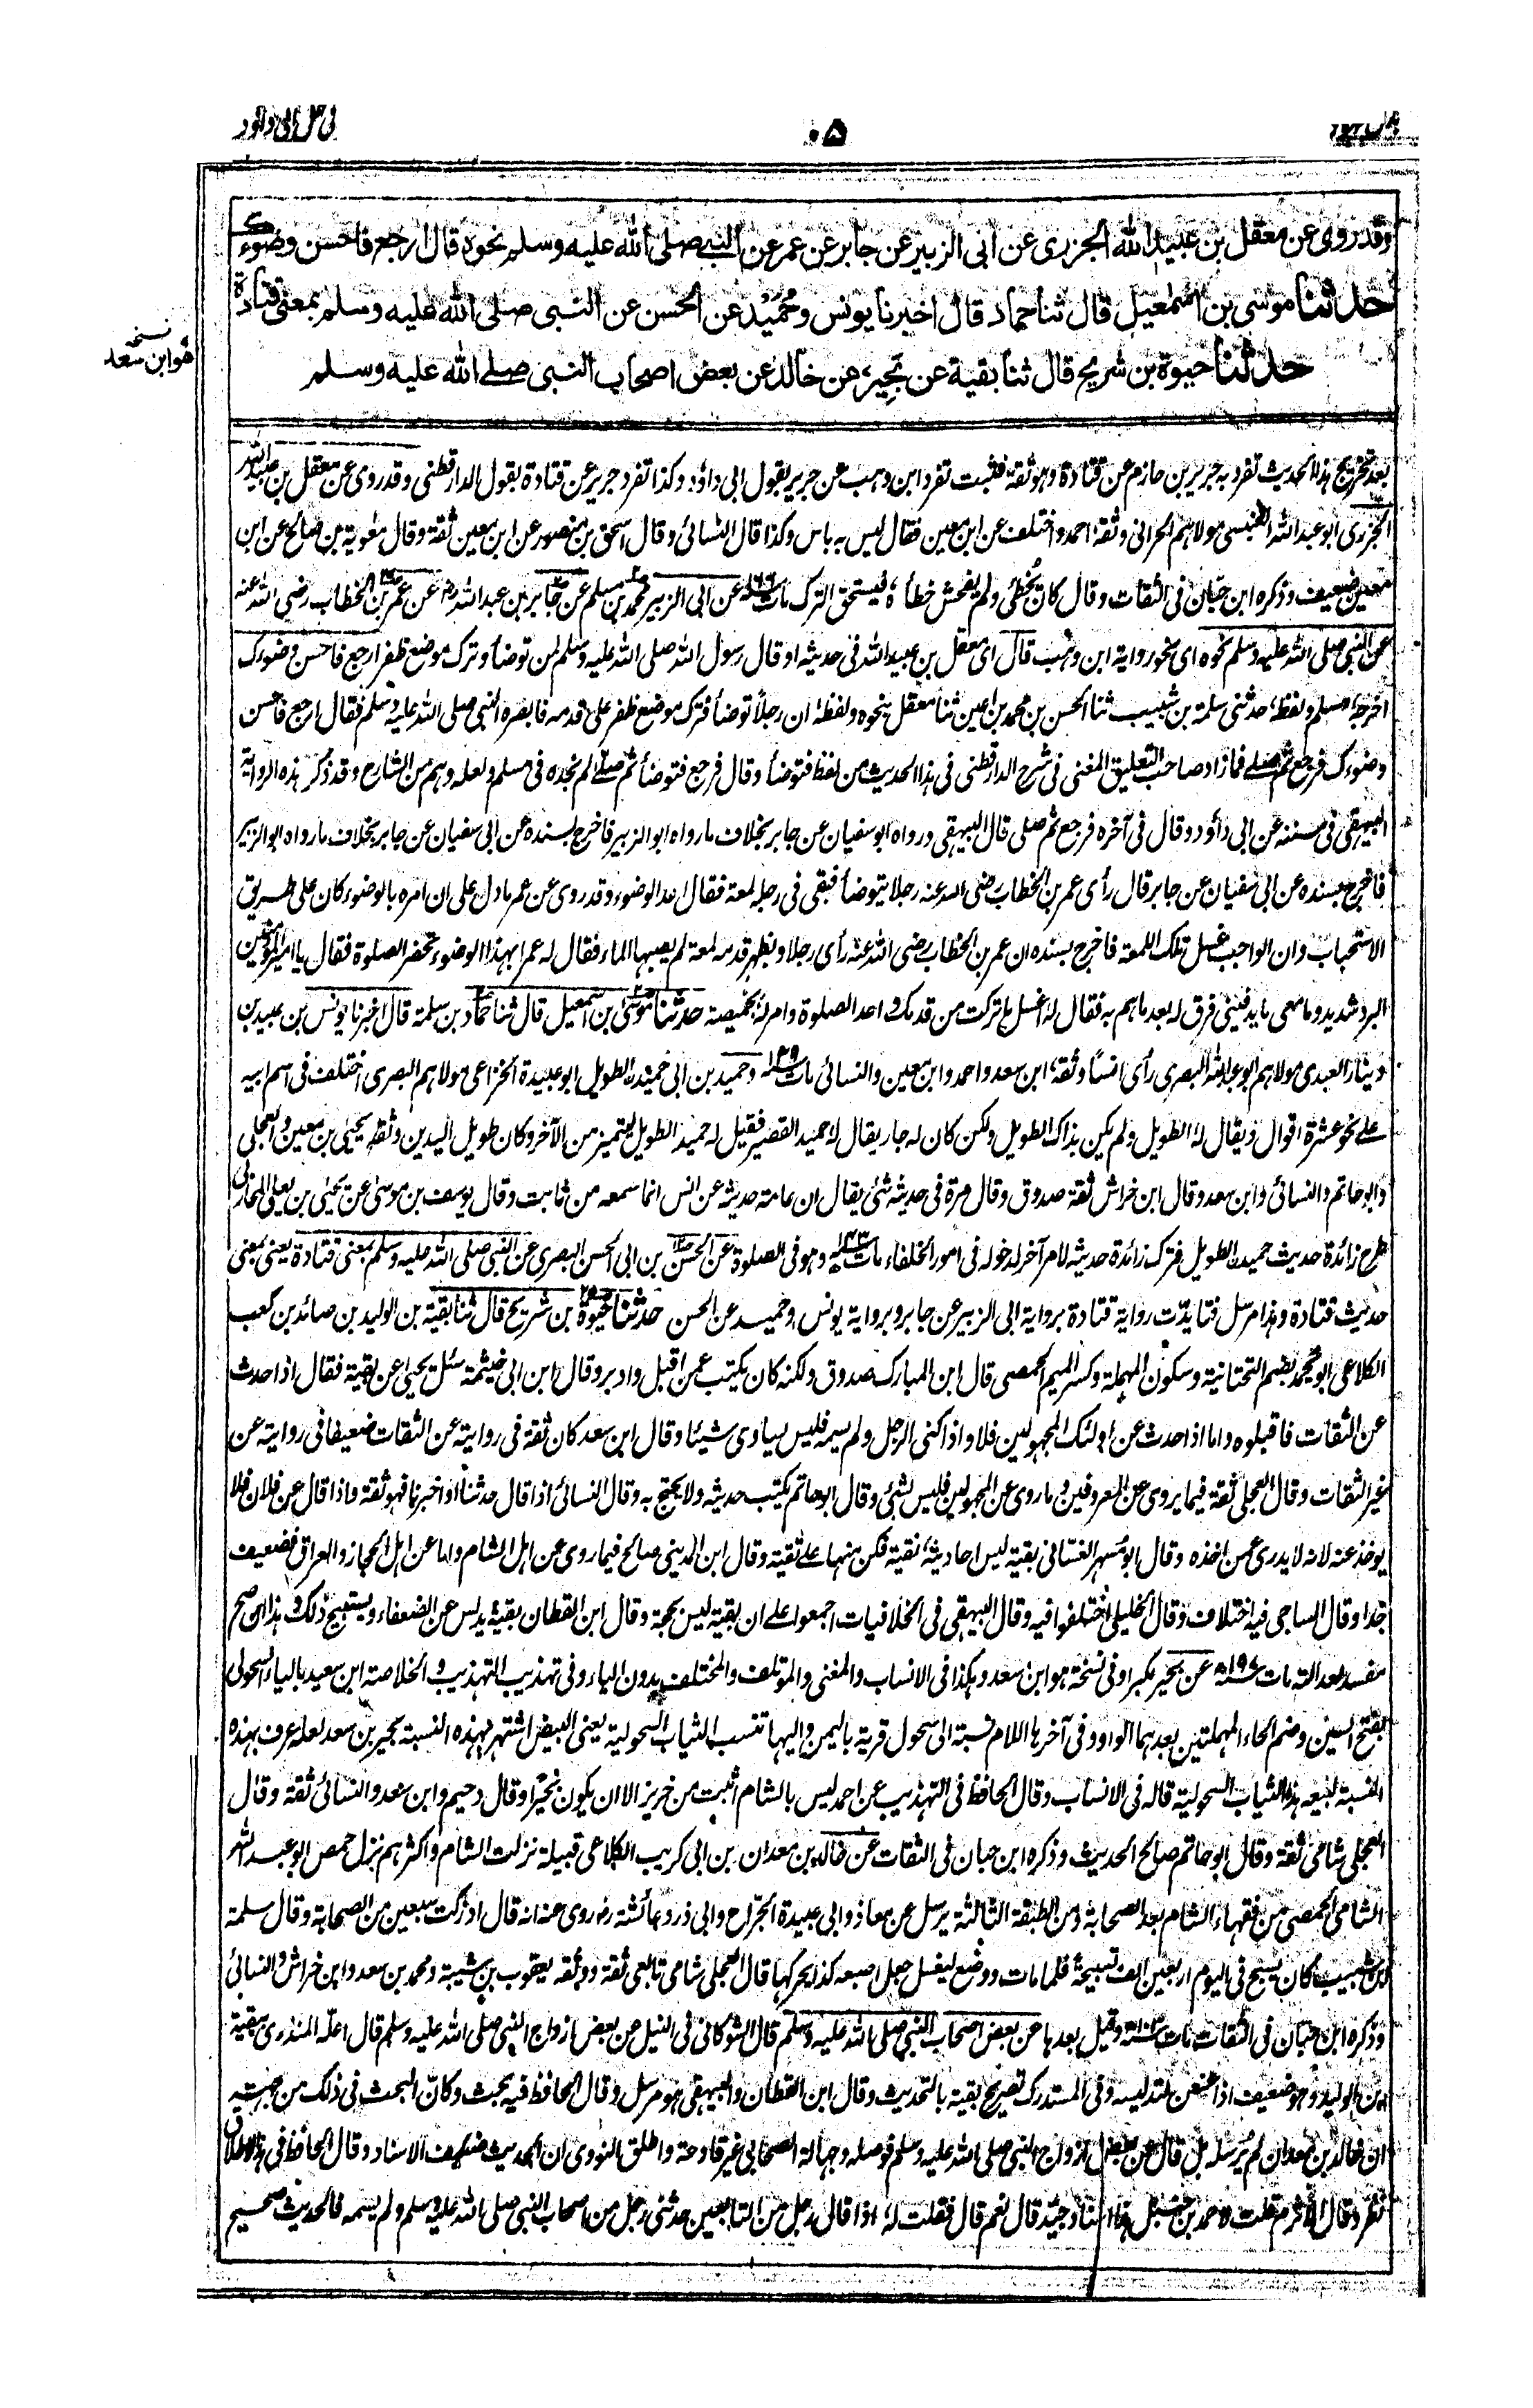 في حل ابى داؤد
٥٠
وقد روى عن معقل بن عبيد الله الجزرى عن ابى الزبير عن جابر عن عمر عن النبي صلى الله عليه وسلم نحوه قال ارجع فاحسن وضوءك
حدثنا موسى بن اسمعيل قال ثنا حماد قال اخبرنا يونس وحُمَيْد عن الحسن عن النبي صلى الله عليه وسلم بمعنى قتادة
نسخه
هو ابن سعد
حدثنا حيوة بن شريح قال ثنا بقية عن بَحِير عن خالد عن بعض اصحاب النبي صلے الله عليه وسلم
بعد تخريج هذا الحديث تفرد به جرير بن حازم عن قتادة وهو ثقة فثبت تفرد ابن وهب عن جرير بقول ابى داؤد وكذا تفرد جرير عن قتادة بقول الدارقطنى وقد روى عن معقل بن عبيد الله
الجزرى ابو عبد الله العبسى مولاهم الحرانى وثقه احمد واختلف عن ابن معين فقال ليس به باس وكذا قال النسائى وقال اسحق بن منصور عن ابن معين ثقة وقال معوية بن صالح عن ابن
معين ضعيف وذكره ابن حبان فى الثقات وقال كان يُخطئ ولم يفحش خطأه فيستحق الترك مات سنة ١٦٦ عن ابى الزبير محمد بن مسلم عن جابر بن عبد الله رض عن عمر بن الخطاب رضي الله عنه
عن النبي صلى الله عليه وسلم نحوه اى نحو رواية ابن وهب قال اى معقل بن عبيد الله فى حديثه او قال رسول الله صلى الله عليه وسلم لمن توضأ وترك موضع ظفر ارجع فاحسن وضوءك
اخرجه مسلم ولفظه حدثنى سلمة بن شبيب ثنا الحسن بن محمد بن اعين ثنا معقل بنحوه ولفظه ان رجلاً توضأ فترك موضع ظفر على قدمه فابصره النبي صلى الله عليه وسلم فقال ارجع فاحسن
وضوءك فرجع ثم صلے فما زاد صاحب التعليق المغنى فى شرح الدارقطنى فى هذا الحديث من لفظ فتوضأ وقال فرجع فتوضأ ثم صلے لم نجده فى مسلم ولعله وهم من الشارح وقد ذكر هذه الرواية
البيهقى فى سننه عن ابى داؤد وقال فى آخره فرجع ثم صلى قال البيهقى ورواه ابو سفيان عن جابر بخلاف ما رواه ابو الزبير فاخرج بسنده عن ابى سفيان عن جابر بخلاف ما رواه ابو الزبير
فاخرج بسنده عن ابى سفيان عن جابر قال رأى عمر بن الخطاب رضى الله عنه رجلا يتوضأ فبقى فى رجله لمعة فقال اعد الوضوء وقد روى عن عمر ما دل على ان امره بالوضوء كان على طريق
الاستحباب وان الواجب غسل تلك اللمعة فاخرج بسنده ان عمر بن الخطاب رضى الله عنه رأى رجلا وبظهر قدمه لمعة لم يصبها الماء فقال له عمر ابهذا الوضوء تحضر الصلوة فقال يا امير المؤمنين
البرد شديد وما معى ما يدفينى فرق له بعد ما هم به فقال له اغسل ما تركت من قدمك واعد الصلوة وامر له بخميصة حدثنا موسى بن اسمعيل قال ثنا حماد بن سلمة قال اخبرنا يونس بن عبيد بن
دينار العبدى مولاهم ابو عبد الله البصرى رأى انساً وثقه ابن سعد واحمد وابن معين والنسائى مات سنة ١٣٩ وحميد بن ابى حميد الطويل ابو عبيدة الخزاعى مولاهم البصرى اختلف فى اسم ابيه
على نحو عشرة اقوال ويقال له الطويل ولم يكن بذاك الطويل ولكن كان له جار يقال له حميد القصير فقيل له حميد الطويل ليتميز من الآخر وكان طويل اليدين وثقه يحيى بن معين والعجلى
وابو حاتم والنسائى وابن سعد وقال ابن خراش ثقة صدوق وقال مرة فى حديثه شئ يقال ان عامة حديثه عن انس انما سمعه من ثابت وقال يوسف بن موسى عن يحيى بن يعلى المحاربى
طرح زائدة حديث حميد الطويل فترك زائدة حديثه لامر آخر لدخوله فى امور الخلفاء مات سنة ١٤٣ وهو فى الصلوة عن الحسن بن ابى الحسن البصرى عن النبي صلى الله عليه وسلم بمعنى قتادة يعنى بمعنى
حديث قتادة وهذا مرسل فتايدت رواية قتادة برواية ابى الزبير عن جابر وبرواية يونس وحميد عن الحسن حدثنا حيوة بن شريح قال ثنا بقية بن الوليد بن صائد بن كعب
الكلاعى ابو يحمد بضم التحتانية وسكون المهملة وكسر الميم الحمصى قال ابن المبارك صدوق ولكنه كان يكتب عمن اقبل وادبر وقال ابن ابى خيثمة سئل يحيى عن بقية فقال اذا حدث
عن الثقات فاقبلوه واما اذا حدث عن اولئك المجهولين فلا واذا كنى الرجل ولم يسمه فليس يساوى شيئا وقال ابن سعد كان ثقة فى روايته عن الثقات ضعيفا فى روايته عن
غير الثقات وقال العجلى ثقة فيما يروى عن المعروفين وما روى عن المجهولين فليس بشئ وقال ابو حاتم يكتب حديثه ولا يحتج به وقال النسائى اذا قال حدثنا او اخبرنا فهو ثقة واذا قال عن فلان فلا
يوخذ عنه لانه لا يدرى عمن اخذه وقال ابو مسهر الغسانى بقية ليس احاديثه نقية فكن منها على تقية وقال ابن المدينى صالح فيما روى عن اهل الشام واما عن اهل الحجاز والعراق فضعيف
جدا وقال الساجى فيه اختلاف وقال الخليلى اختلفوا فيه وقال البيهقى فى الخلافيات اجمعوا على ان بقية ليس بحجة وقال ابن القطان بقية يدلس عن الضعفاء ويستبيح ذلك وهذا ان صح
مفسد لعدالته مات سنة ١٩٧ عن بحير مكبرا وفى نسخة هو ابن سعد وهكذا فى الانساب والمغنى والمؤتلف والمختلف بدون الياء وفى تهذيب التهذيب والخلاصة ابن سعيد بالياء السحولى
بفتح السين وضم الحاء المهملتين بعدهما الواو وفى آخرها اللام نسبة الى سحول قرية باليمن واليها تنسب الثياب السحولية يعنى البيض اشتهر بهذه النسبة بحير بن سعد لعله عرف بهذه
النسبة لبيعه هذه الثياب السحولية قاله فى الانساب وقال الحافظ فى التهذيب عن احمد ليس بالشام اثبت من حريز الا ان يكون بحيرا وقال دحيم وابن سعد والنسائى ثقة وقال
العجلى شامى ثقة وقال ابو حاتم صالح الحديث وذكره ابن حبان فى الثقات عن خالد بن معدان بن ابى كريب الكلاعى قبيلة نزلت الشام واكثرهم نزل حمص ابو عبد الله
الشامى الحمصى من فقهاء الشام بعد الصحابة ومن الطبقة الثالثة يرسل عن معاذ وابى عبيدة الجراح وابى ذر وعائشة رض روى عنه انه قال ادركت سبعين من الصحابة وقال سلمة
بن شبيب كان يسبح فى اليوم اربعين الف تسبيحة فلما مات ووضع ليغسل جعل اصبعه كذا يحركها قال العجلى شامى تابعى ثقة ووثقه يعقوب بن شيبة ومحمد بن سعد وابن خراش والنسائى
وذكره ابن حبان فى الثقات مات سنة ١٠٣ وقيل بعدها عن بعض اصحاب النبي صلى الله عليه وسلم قال الشوكانى فى النيل عن بعض ازواج النبي صلى الله عليه وسلم قال اعله المنذرى ببقية
بن الوليد وهو ضعيف اذا عنعن لتدليسه وفى المستدرك تصريح بقية بالتحديث وقال ابن القطان والبيهقى هو مرسل وقال الحافظ فيه بحث وكان البحث فى ذلك من جهة
ان خالد بن معدان لم يرسله بل قال عن بعض ازواج النبي صلى الله عليه وسلم فوصله وجهالة الصحابى غير قادحة واطلق النووى ان الحديث ضعيف الاسناد وقال الحافظ فى هذا الاطلاق
نظر وقال الاثرم قلت لاحمد بن حنبل هذا اسناد جيد قال نعم قال فقلت له اذا قال رجل من التابعين حدثنى رجل من اصحاب النبي صلى الله عليه وسلم ولم يسمه فالحديث صحيح